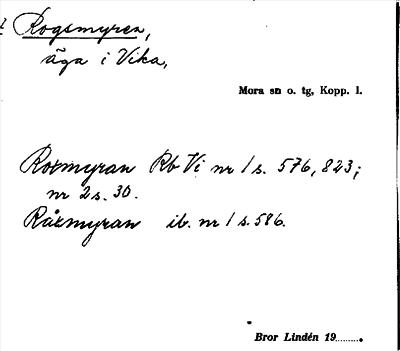 Rogsmyren,
äga i Vika,
Mora sn o. tg, Kopp. l.
Rosmyran Rb Vi nr 1 s. 576, 823;
nr 2 s. 30.
Råsmyran ib. nr 1 s. 586.
Bror Lindén 19.........